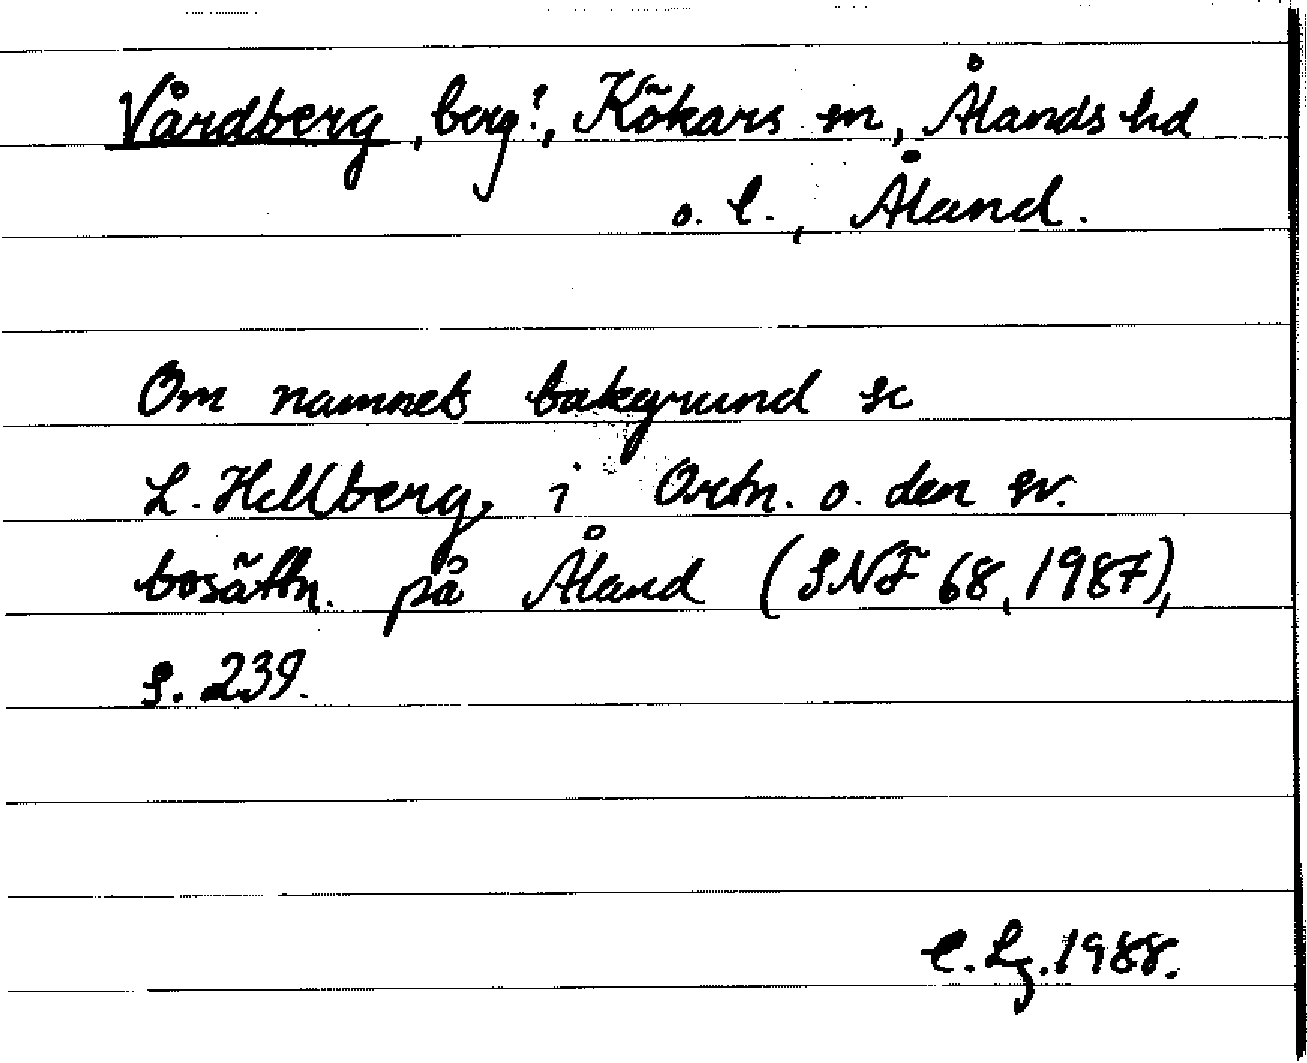 Vårdberg, berg!, Kökars sn, Ålands hd
o. l., Åland.
Om namnets bakgrund se
L. Hellberg, i Ortn. o. den sv.
bosättn. på Åland (SNF 68, 1987),
s. 239.
C. Lg. 1988.